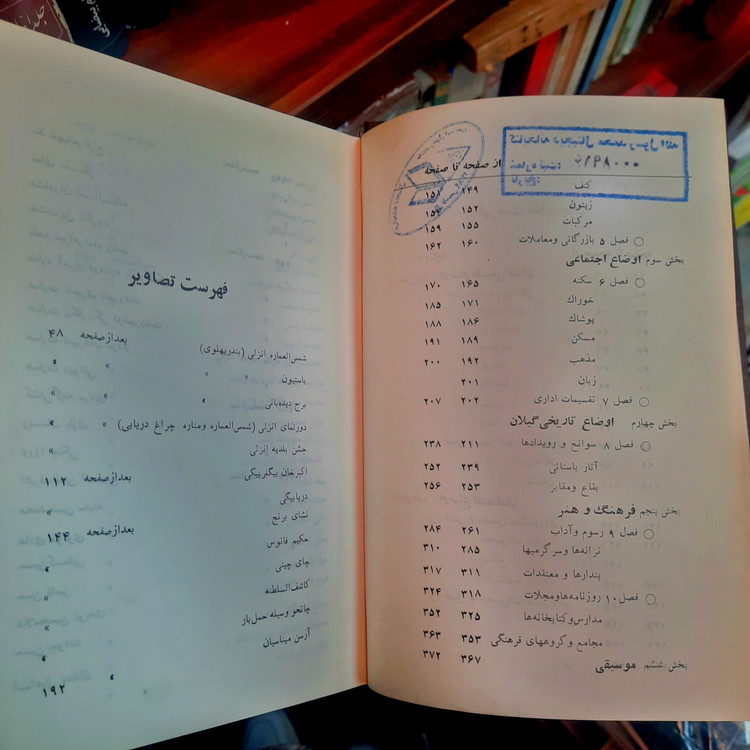 از صفحه تا صفحه
کنف ۱۴۹ ۱۵۱
زیتون ۱۵۲ ۱۵۴
مرکبات ۱۵۵ ۱۵۹
فصل ۵ بازرگانی ومعاملات ۱۶۰ ۱۶۲
بخش سوم اوضاع اجتماعی
فصل ۶ سکنه ۱۶۵ ۱۷۰
خوراك ۱۷۱ ۱۸۵
پوشاك ۱۸۶ ۱۸۸
مسکن ۱۸۹ ۱۹۱
مذهب ۱۹۲ ۲۰۰
زبان ۲۰۱
فصل ۷ تقسیمات اداری ۲۰۲ ۲۰۷
بخش چهارم اوضاع تاریخی گیلان
فصل ۸ سوانح و رویدادها ۲۱۱ ۲۳۸
آثار باستانی ۲۳۹ ۲۵۲
بقاع ومقابر ۲۵۳ ۲۵۶
بخش پنجم فرهنگ و هنر
فصل ۹ رسوم وآداب ۲۶۱ ۲۸۴
ترانه‌ها وسرگرمیها ۲۸۵ ۳۱۰
پندارها و معتقدات ۳۱۱ ۳۱۷
فصل ۱۰ روزنامه‌هاومجلات ۳۱۸ ۳۲۴
مدارس‌وکتابخانه‌ها ۳۲۵ ۳۵۲
مجامع وگروههای فرهنگی ۳۵۳ ۳۶۳
بخش ششم موسیقی ۳۶۷ ۳۷۲
فهرست تصاویر
شمس‌العماره انزلی (بندرپهلوی) بعدازصفحه ۴۸
باستیون » » »
برج دیده‌بانی » » »
دورنمای انزلی (شمس‌العماره ومناره چراغ دریایی) » »
جشن بلدیه انزلی
اکبرخان بیگلربیگی بعدازصفحه ۱۱۲
دریابیگی
نشای برنج
حکیم فانوس بعدازصفحه ۱۴۴
چای چینی
کاشف‌السلطنه
چانچو وسیله حمل‌بار
آرسن میناسیان
» ۱۹۲